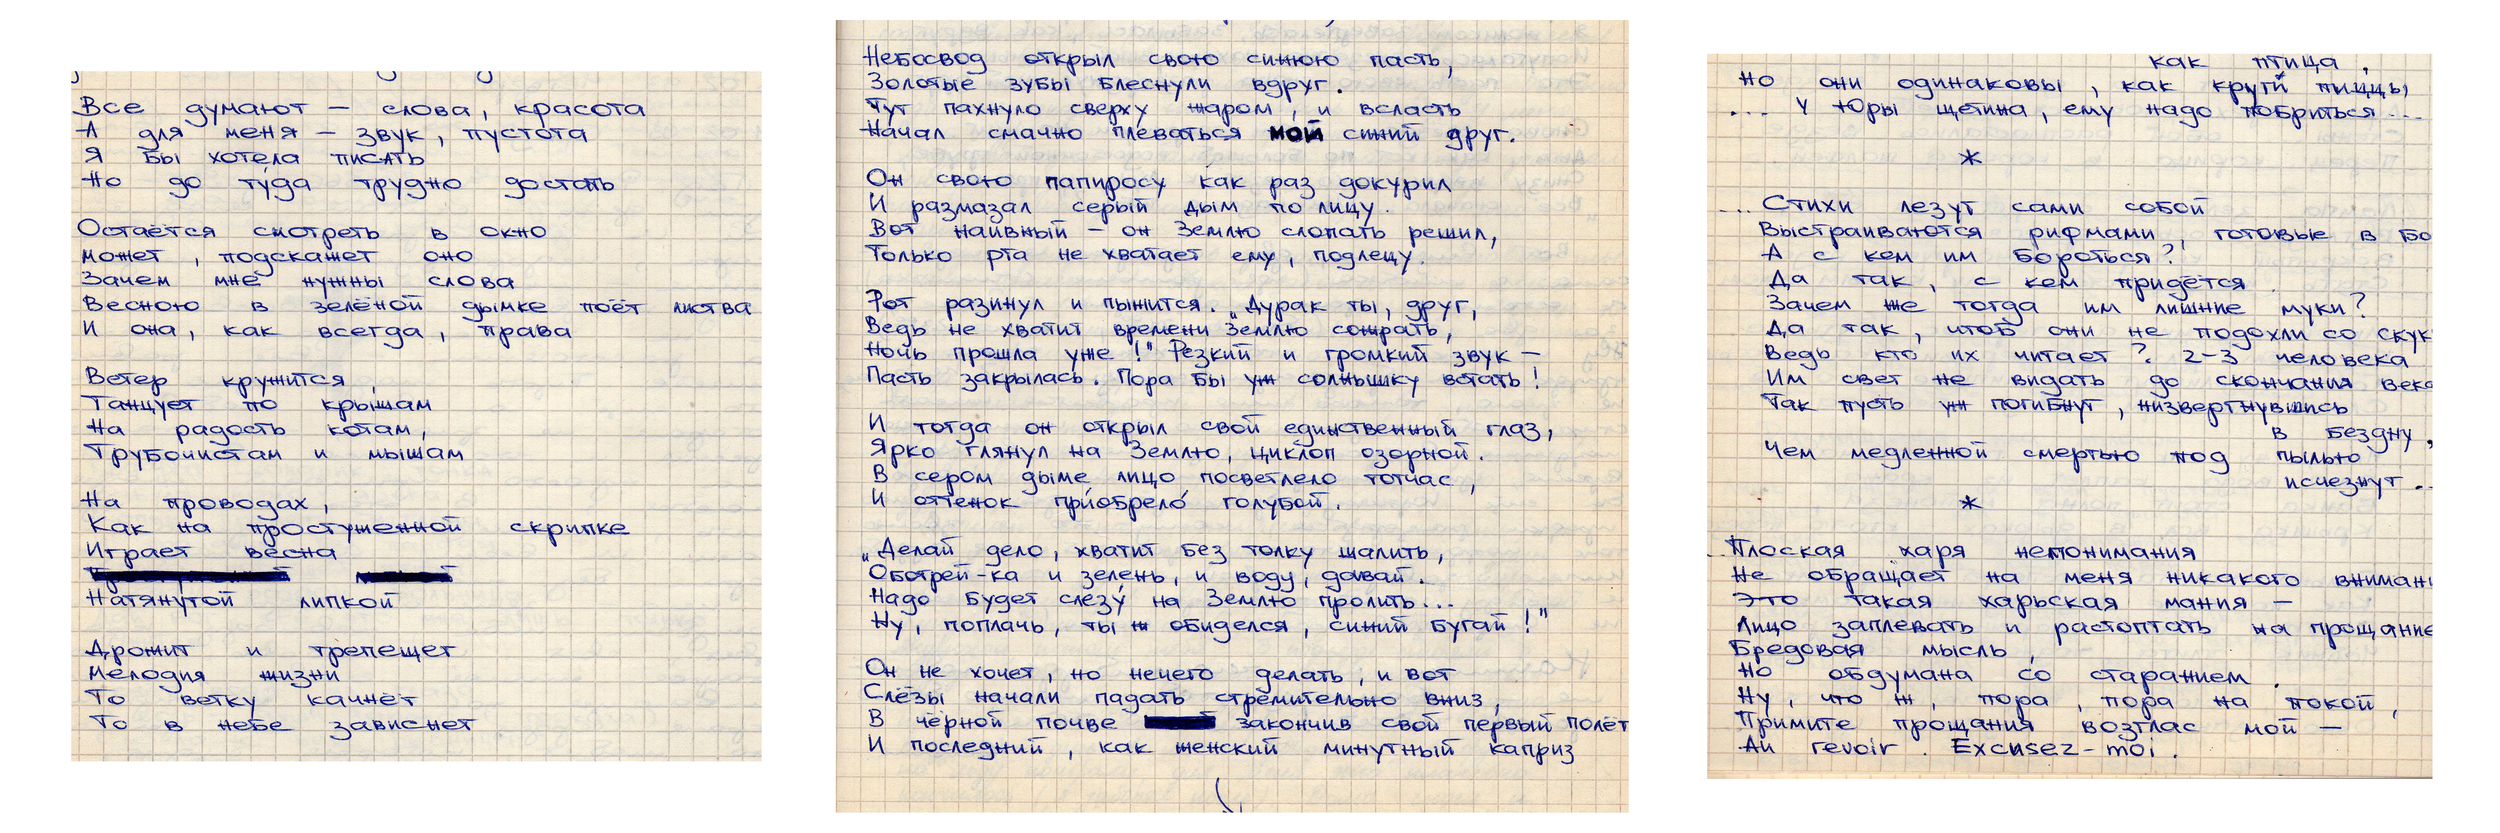 Все думают – слова, красота
А для меня – звук, пустота
Я бы хотела писать
Но до туда трудно достать
Остаётся смотреть в окно
Может, подскажет оно
Зачем мне нужны слова
Весною в зелёной дымке поёт листва
И она, как всегда, права
Ветер кружится,
Танцует по крышам
На радость котам,
Трубочистам и мышам
На проводах,
Как на простуженной скрипке
Играет весна
Натянутой липкой
Дрожит и трепещет
Мелодия жизни
То ветку качнёт
То в небе зависнет
Небосвод открыл свою синюю пасть,
Золотые зубы блеснули вдруг.
Тут пахнуло сверху жаром, и всласть
Начал смачно плеваться мой синий друг.
Он свою папиросу как раз докурил
И размазал серый дым по лицу.
Вот наивный – он Землю слопать решил,
Только рта не хватает ему, подлецу.
Рот разинул и пыжится. „Дурак ты, друг,
Ведь не хватит времени Землю сожрать,
Ночь прошла уже!" Резкий и громкий звук –
Пасть закрылась. Пора бы уж солнышку встать!
И тогда он открыл свой единственный глаз,
Ярко глянул на Землю, циклоп озорной.
В сером дыме лицо посветлело тотчас,
И оттенок приобрело голубой.
„Делай дело, хватит без толку шалить,
Оботрей-ка и зелень, и воду, давай.
Надо будет слезу на Землю пролить...
Ну, поплачь, ты ж обиделся, синий бугай!"
Он не хочет, но нечего делать, и вот
Слёзы начали падать стремительно вниз,
В чёрной почве закончив свой первый полёт
И последний, как женский минутный каприз
как птица,
Но они одинаковы, как круги пиццы
... У Юры щетина, ему надо побриться...
*
... Стихи лезут сами собой
Выстраиваются рифмами, готовые в бо
А с кем им бороться?
Да так, с кем придётся.
Зачем же тогда им лишние муки?
Да так, чтоб они не подохли со скук
Ведь кто их читает? 2-3 человека
Им свет не видать до скончания века
Так пусть уж погибнут, низвергнувшись
в бездну,
Чем медленной смертью под пылью
исчезнут...
*
..Плоская харя непонимания
Не обращает на меня никакого вниман
Это такая харьская мания –
Лицо заплевать и растоптать на прощание
Бредовая мысль,
Но обдумана со старанием.
Ну, что ж, пора, пора на покой,
Примите прощания возглас мой –
Au revoir. Excusez-moi.